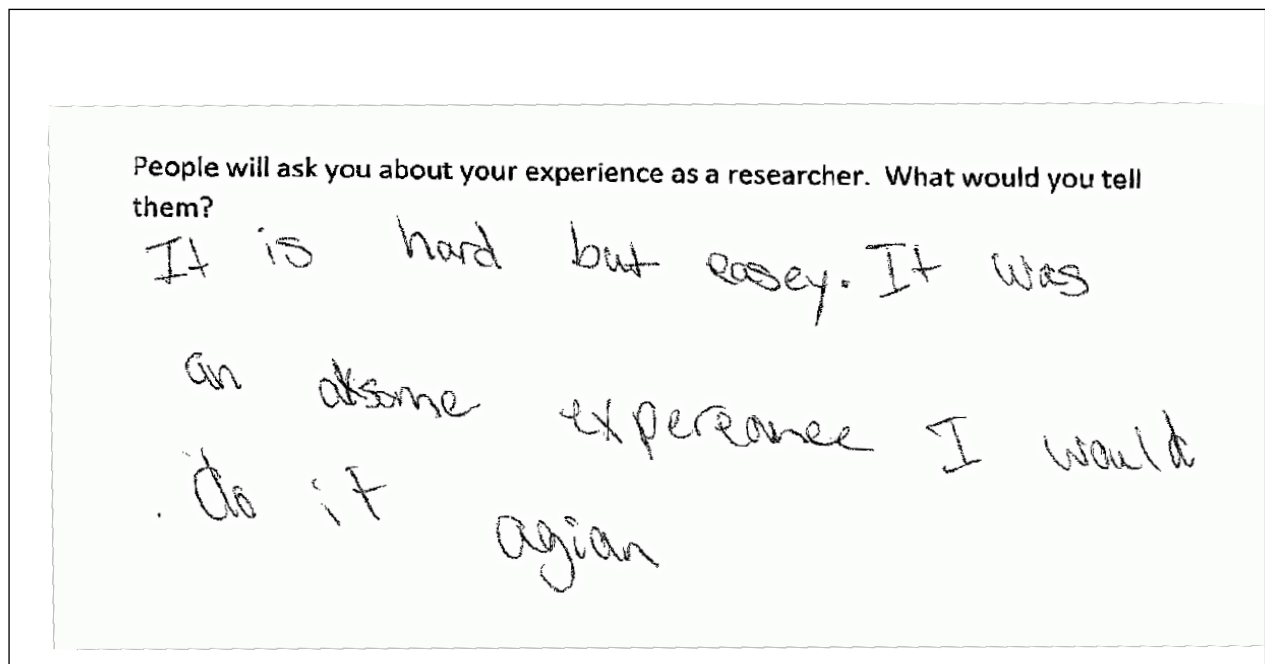 People will ask you about your experience as a researcher. What would you tell
them?
It is hard but easey. It was
an aksome expereance I would
do it agian